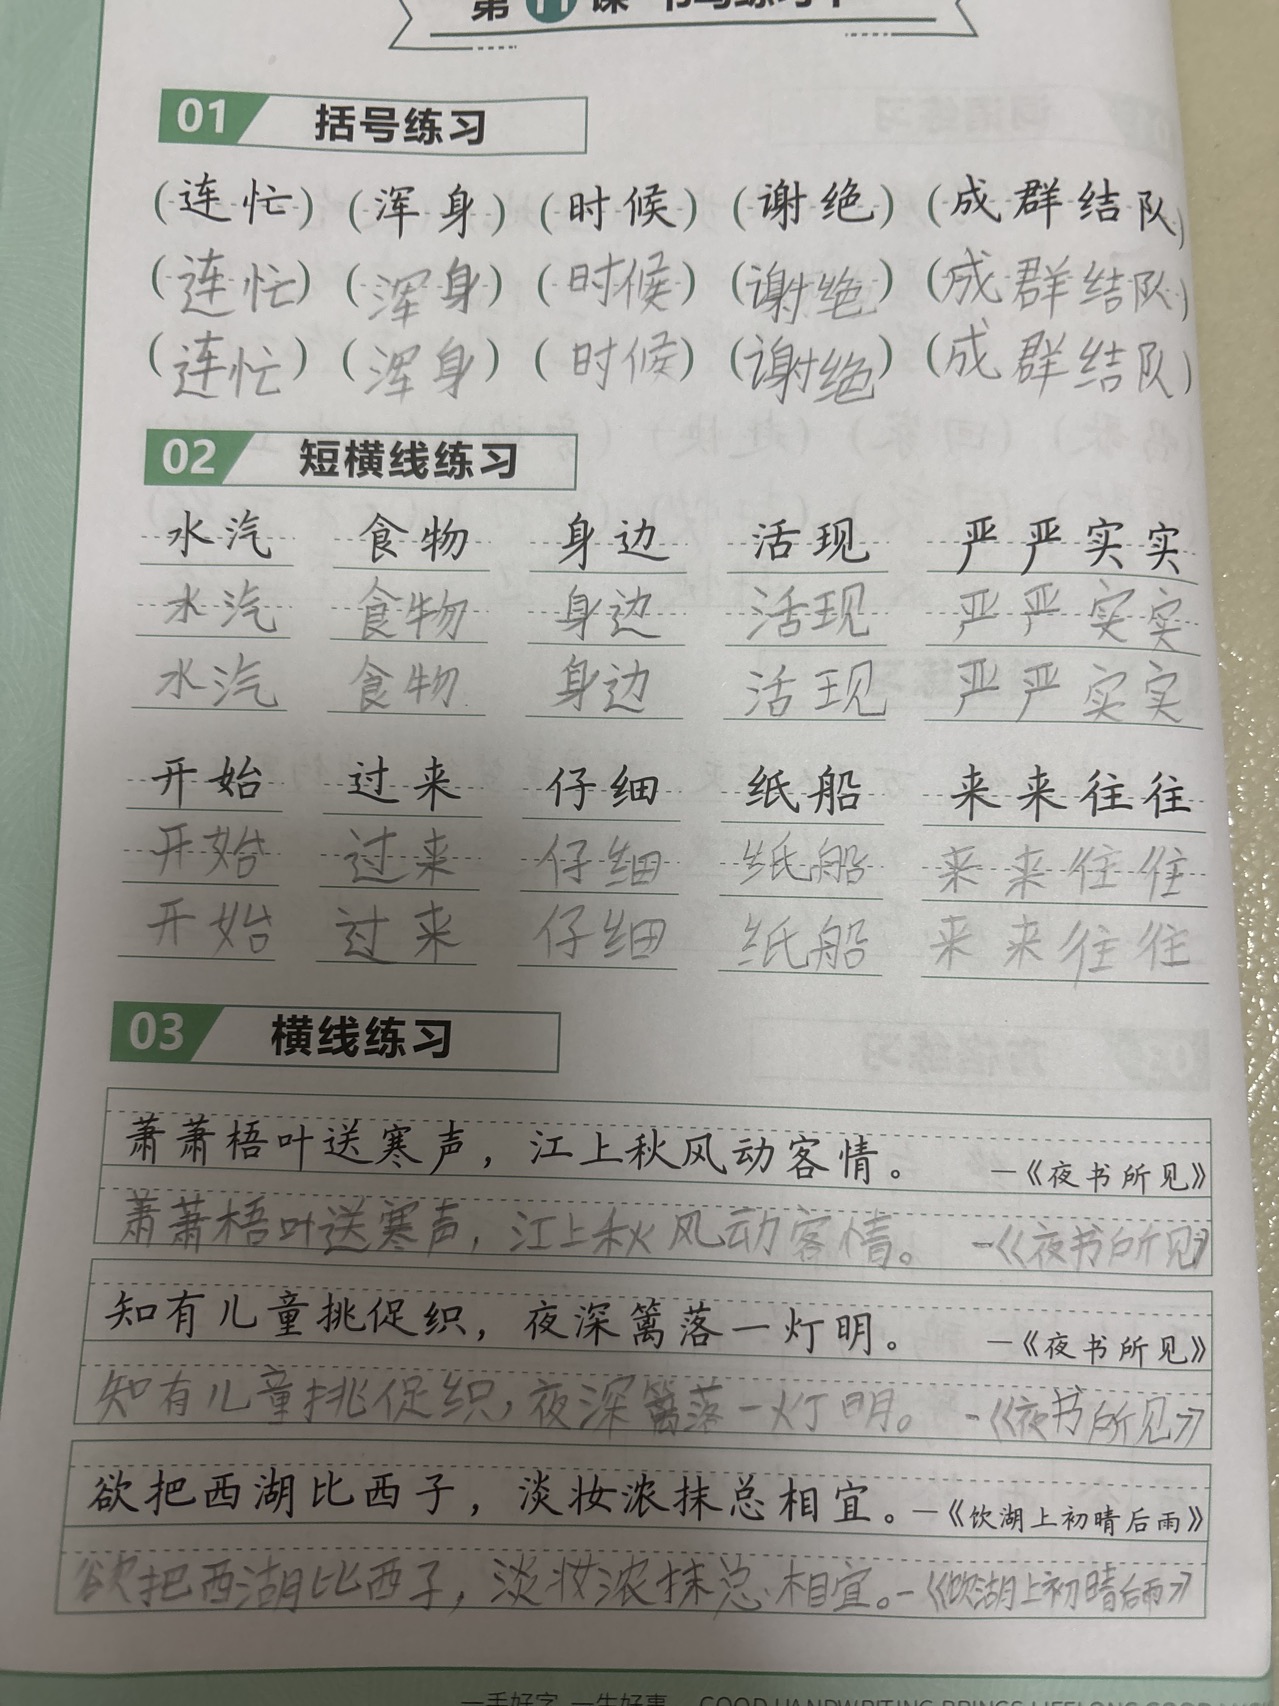 第11课 书写练习
01 括号练习
(连忙) (浑身) (时候) (谢绝) (成群结队)
(连忙) (浑身) (时候) (谢绝) (成群结队)
(连忙) (浑身) (时候) (谢绝) (成群结队)
02 短横线练习
水汽 食物 身边 活现 严严实实
水汽 食物 身边 活现 严严实实
水汽 食物 身边 活现 严严实实
开始 过来 仔细 纸船 来来往往
开始 过来 仔细 纸船 来来往往
开始 过来 仔细 纸船 来来往往
03 横线练习
萧萧梧叶送寒声，江上秋风动客情。 —《夜书所见》
萧萧梧叶送寒声，江上秋风动客情。 —《夜书所见》
知有儿童挑促织，夜深篱落一灯明。 —《夜书所见》
知有儿童挑促织，夜深篱落一灯明。 —《夜书所见》
欲把西湖比西子，淡妆浓抹总相宜。—《饮湖上初晴后雨》
欲把西湖比西子，淡妆浓抹总相宜。—《饮湖上初晴后雨》
一手好字 一生好事 GOOD HANDWRITING BRINGS LIFELONG